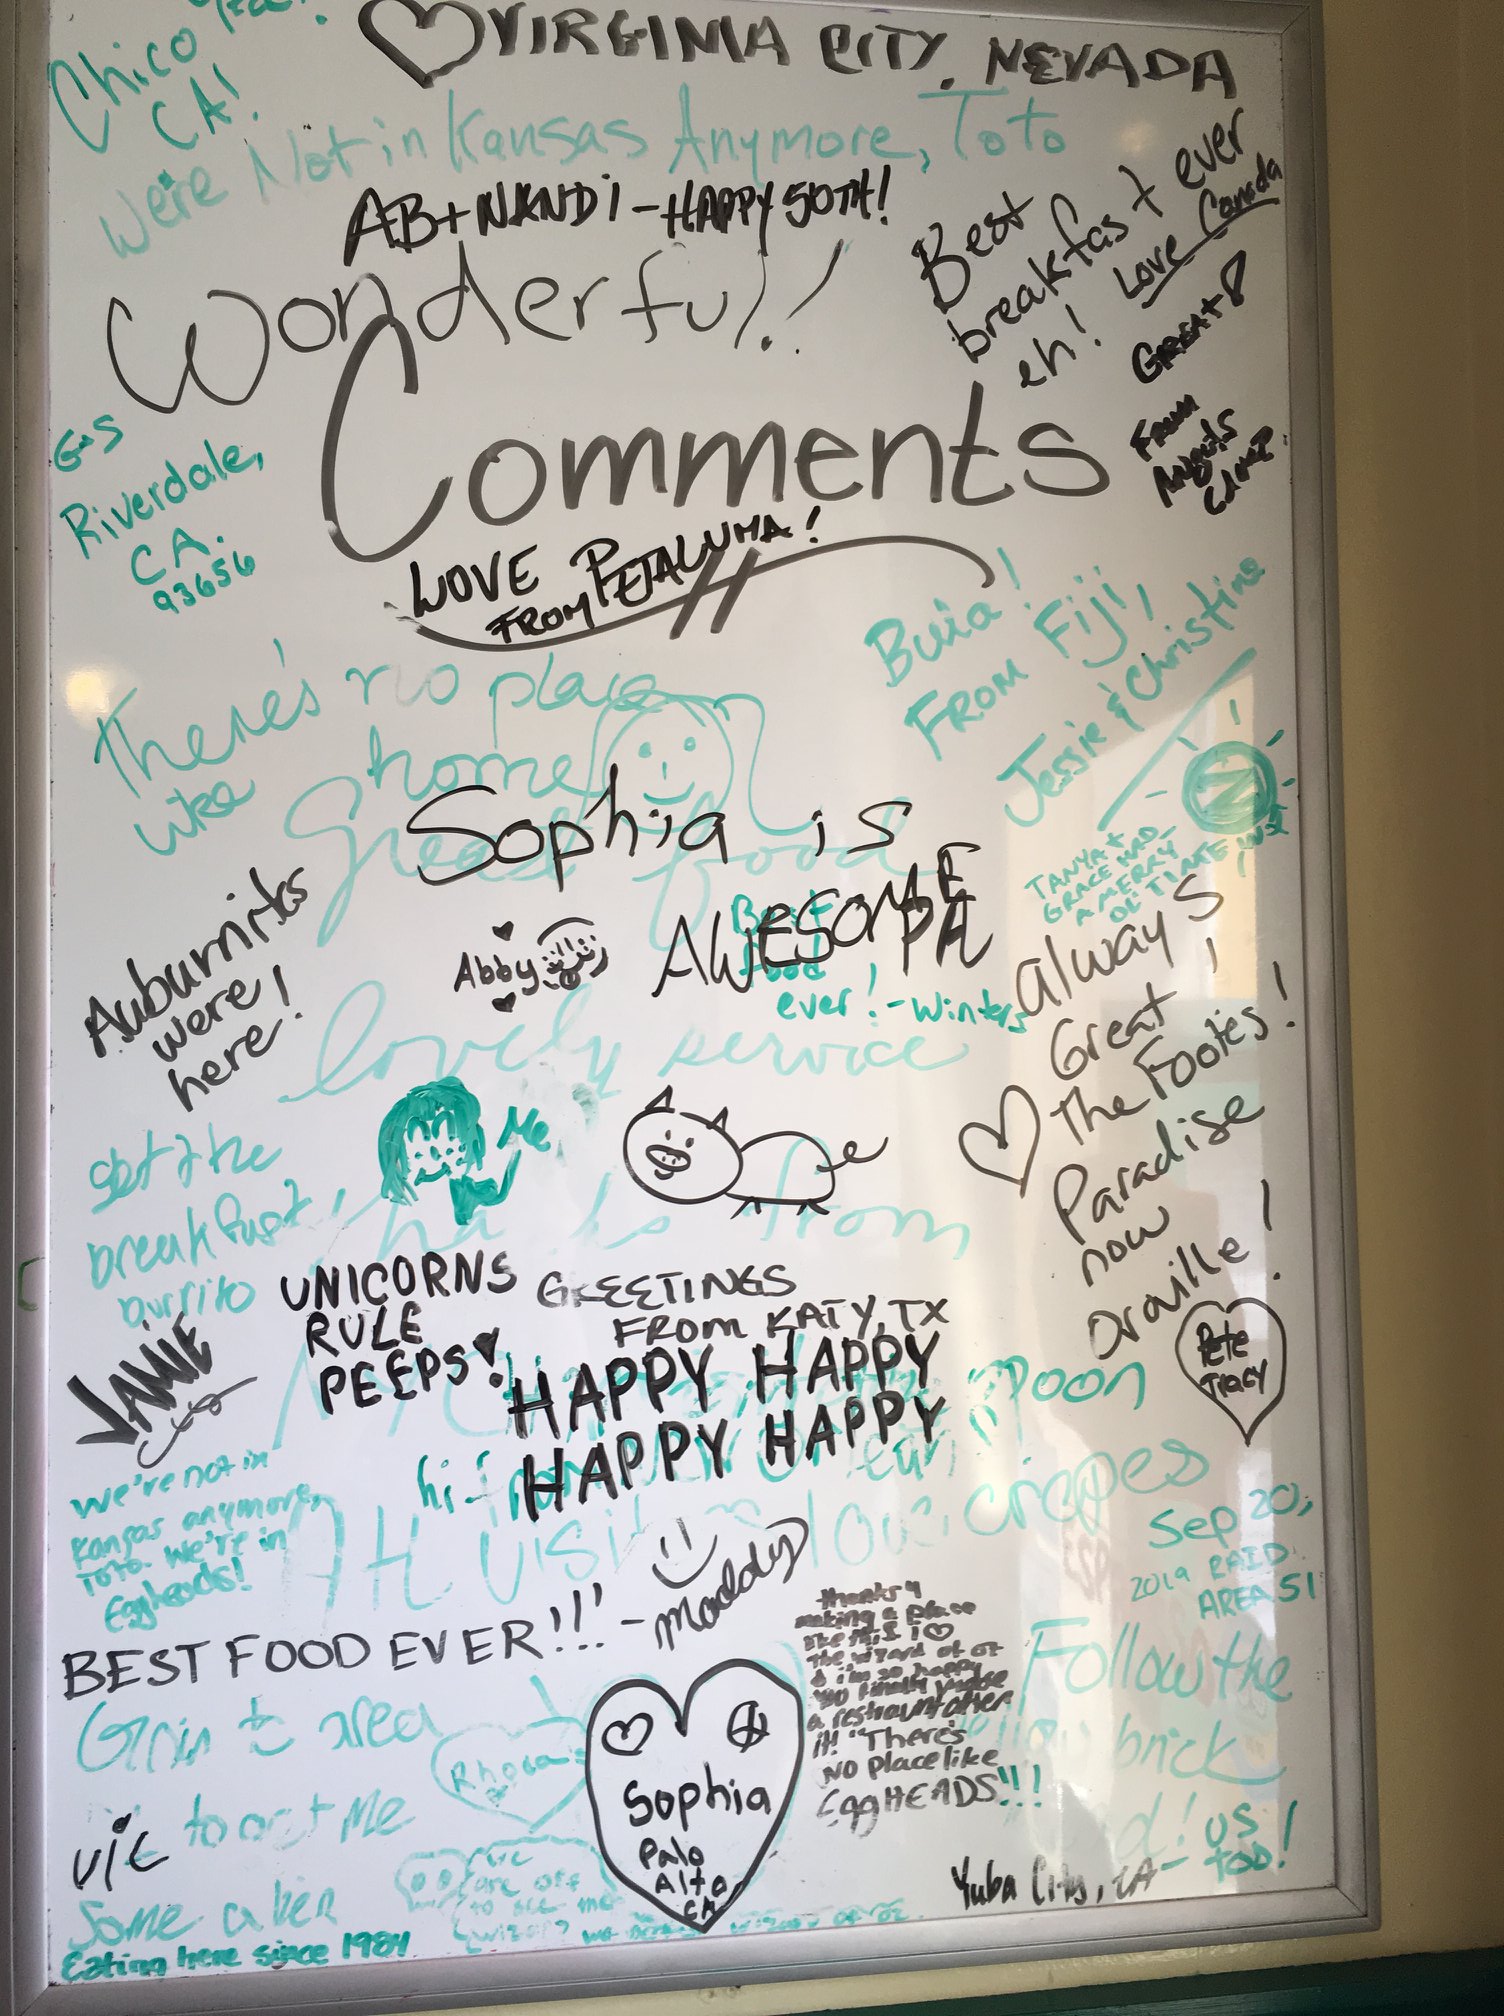 Chico
CA!
VIRGINIA CITY, NEVADA
We're Not in Kansas Anymore, Toto
AB + NANDI - HAPPY 50TH!
Best
breakfast ever
eh!
Love Canada
Wonderful!
Comments
GREAT
FROM
ANGELS
CAMP
Gus
Riverdale,
CA.
93656
LOVE
FROM PETALUMA!
Bula!
FROM Fiji,
Jessie & Christine
There's no place
like home
Great food
Sophia is
AWESOME
N
TANYA +
GRACE HAD
A MERRY
OL' TIME
Auburnites
were
here!
Abby
Best
food
ever! - Winters
always
Great!
The Footes!
Paradise
now
Oroville!
lovely service
Me
get the
breakfast
burrito
from
JAMIE
UNICORNS
RULE
PEEPS!
GREETINGS
FROM KATY, TX
HAPPY HAPPY
HAPPY HAPPY
Pete
Tracy
hi from
We're not in
Kansas anymore,
Toto. We're in
Eggheads!
crepes
Sep 20,
2019 RAID
AREA 51
BEST FOOD EVER!!! - Maddy
thanks 4
making a place
like this I
the wizard of oz
& i'm so happy
finally
a restraunt after
it! "There's
NO Place like
EggHEADS!!!
Follow the
brick
area
to get Me
Some alien
Vic
Sophia
Palo
Alto
CA
we
are off
to see the
wizard
Yuba City, CA - us
too!
Eating here since 1984